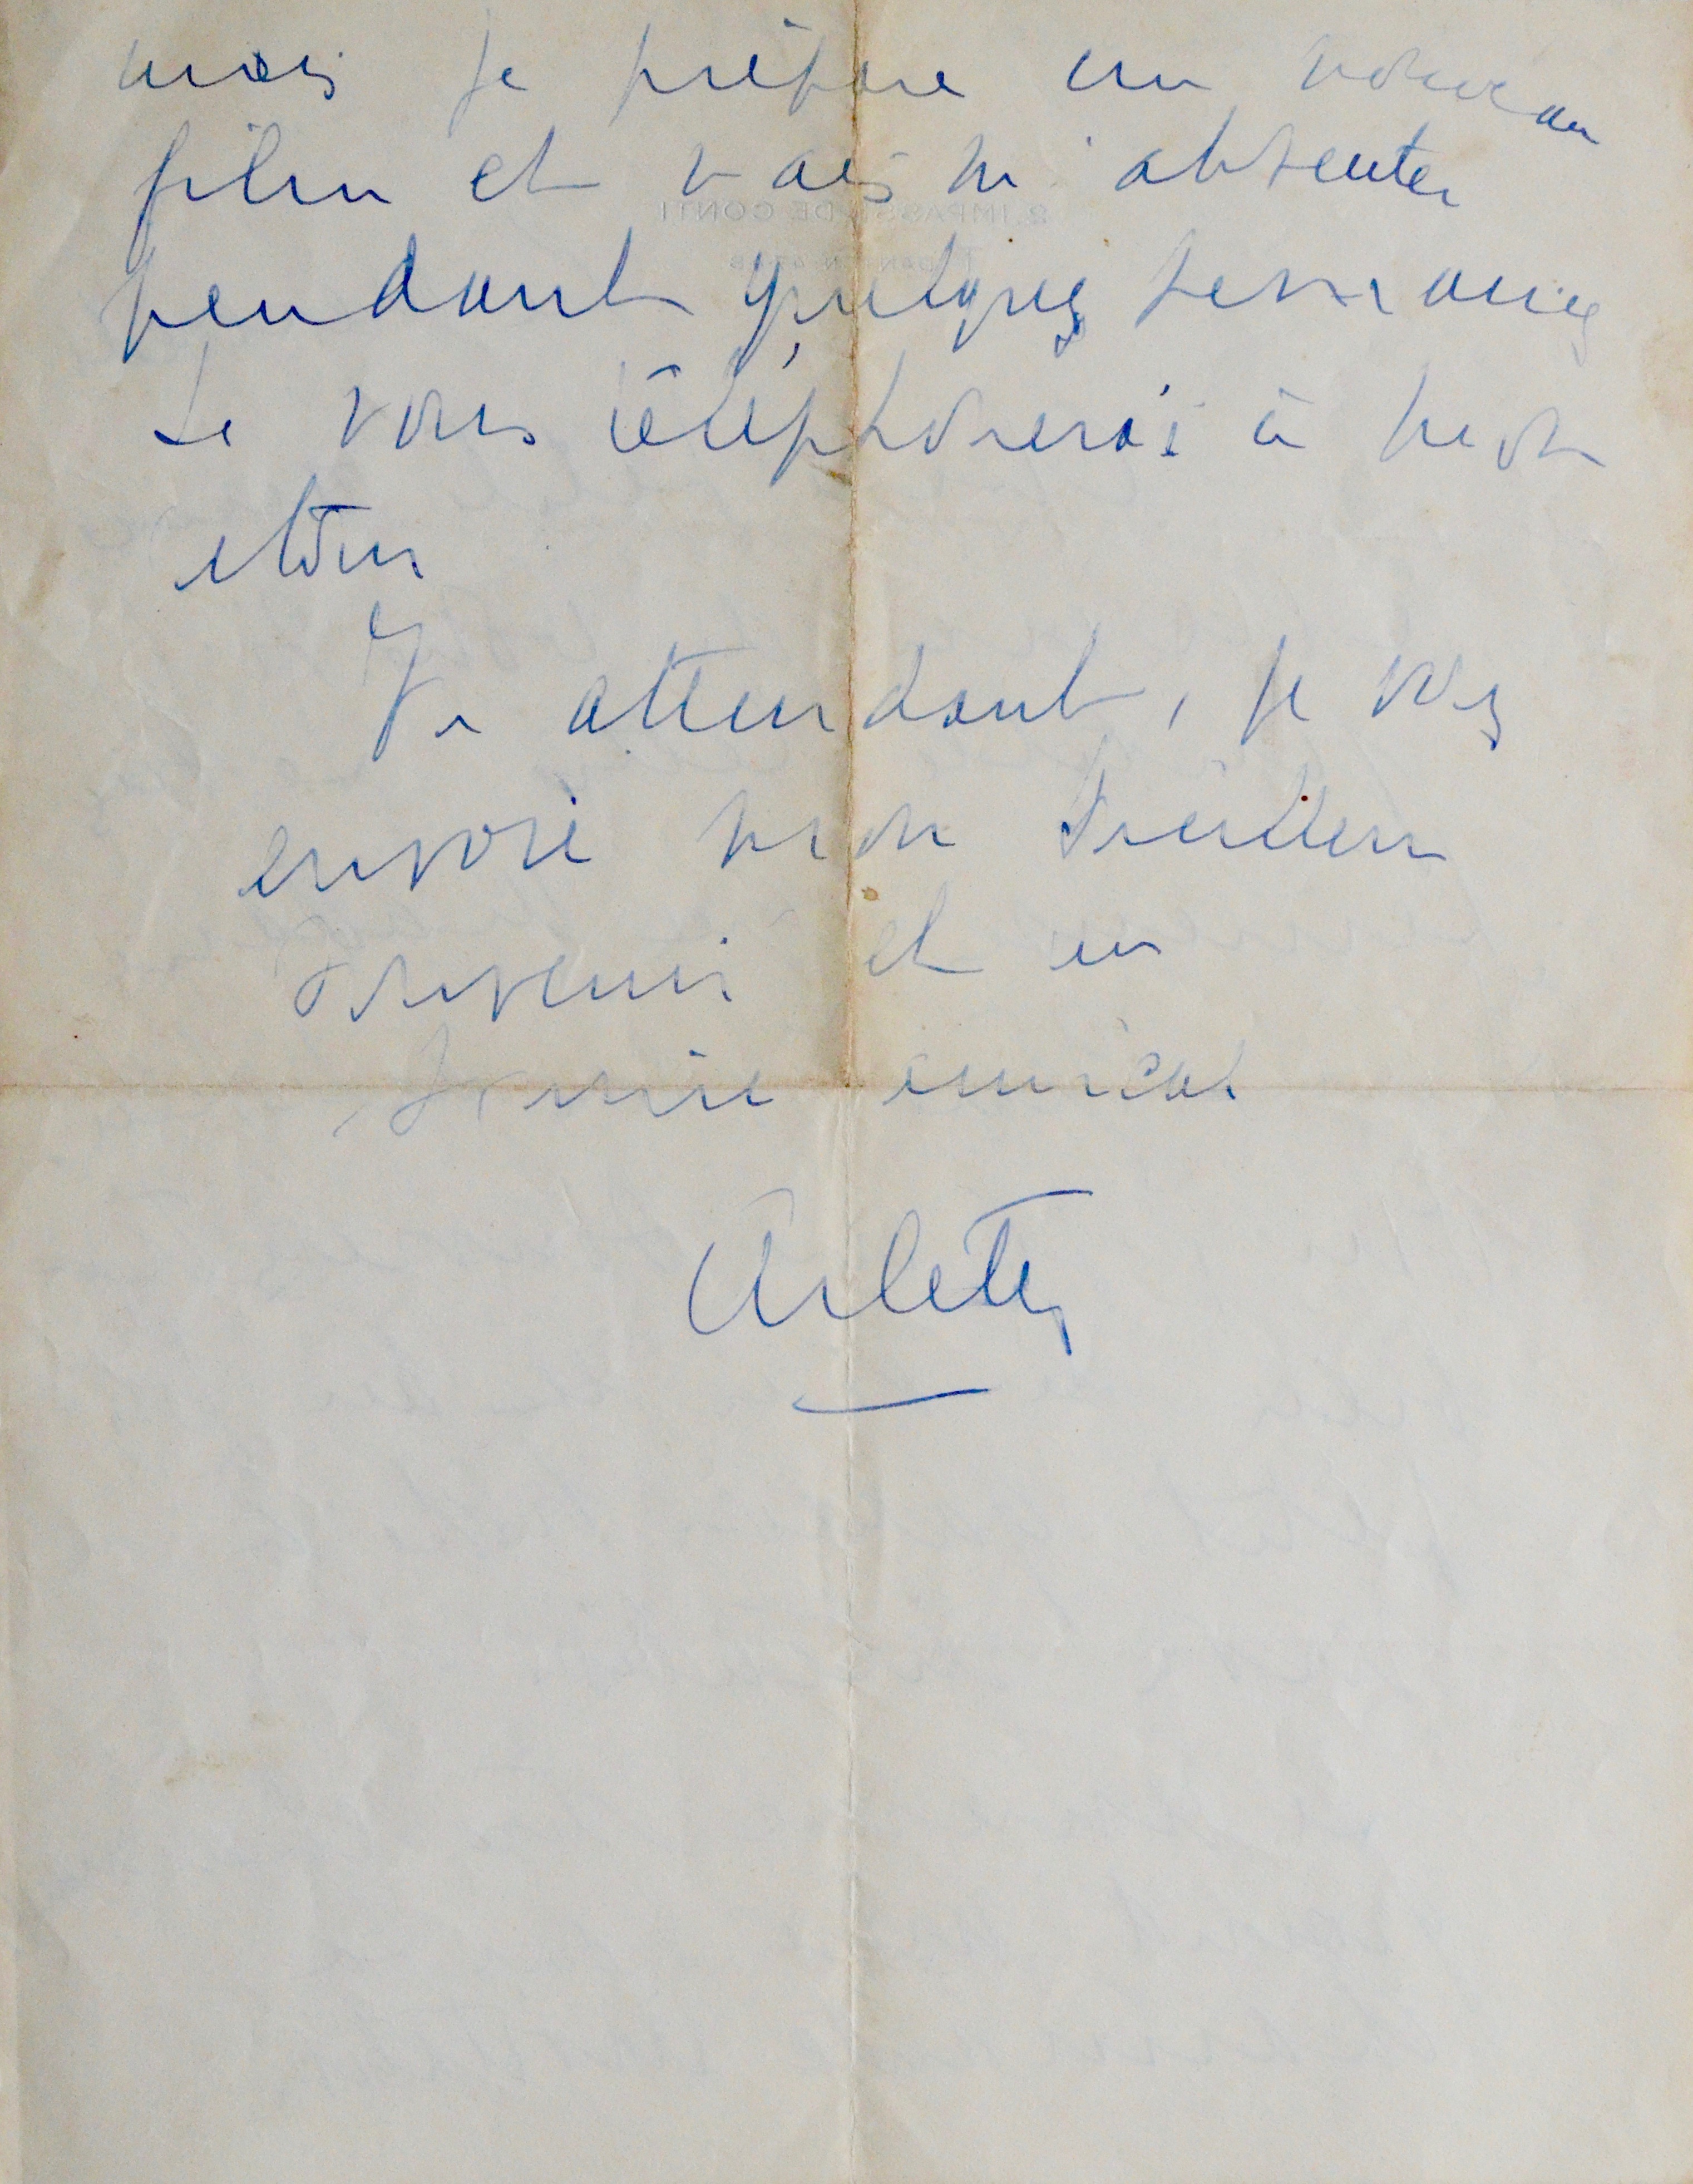 mais je prépare un nouveau
film et vais m'absenter
pendant quelques semaines
Je vous téléphonerai à mon
retour
En attendant, je vous
envoie mon meilleur
souvenir et un
sourire amical
Arletty
2, IMPASSE DE CONTI